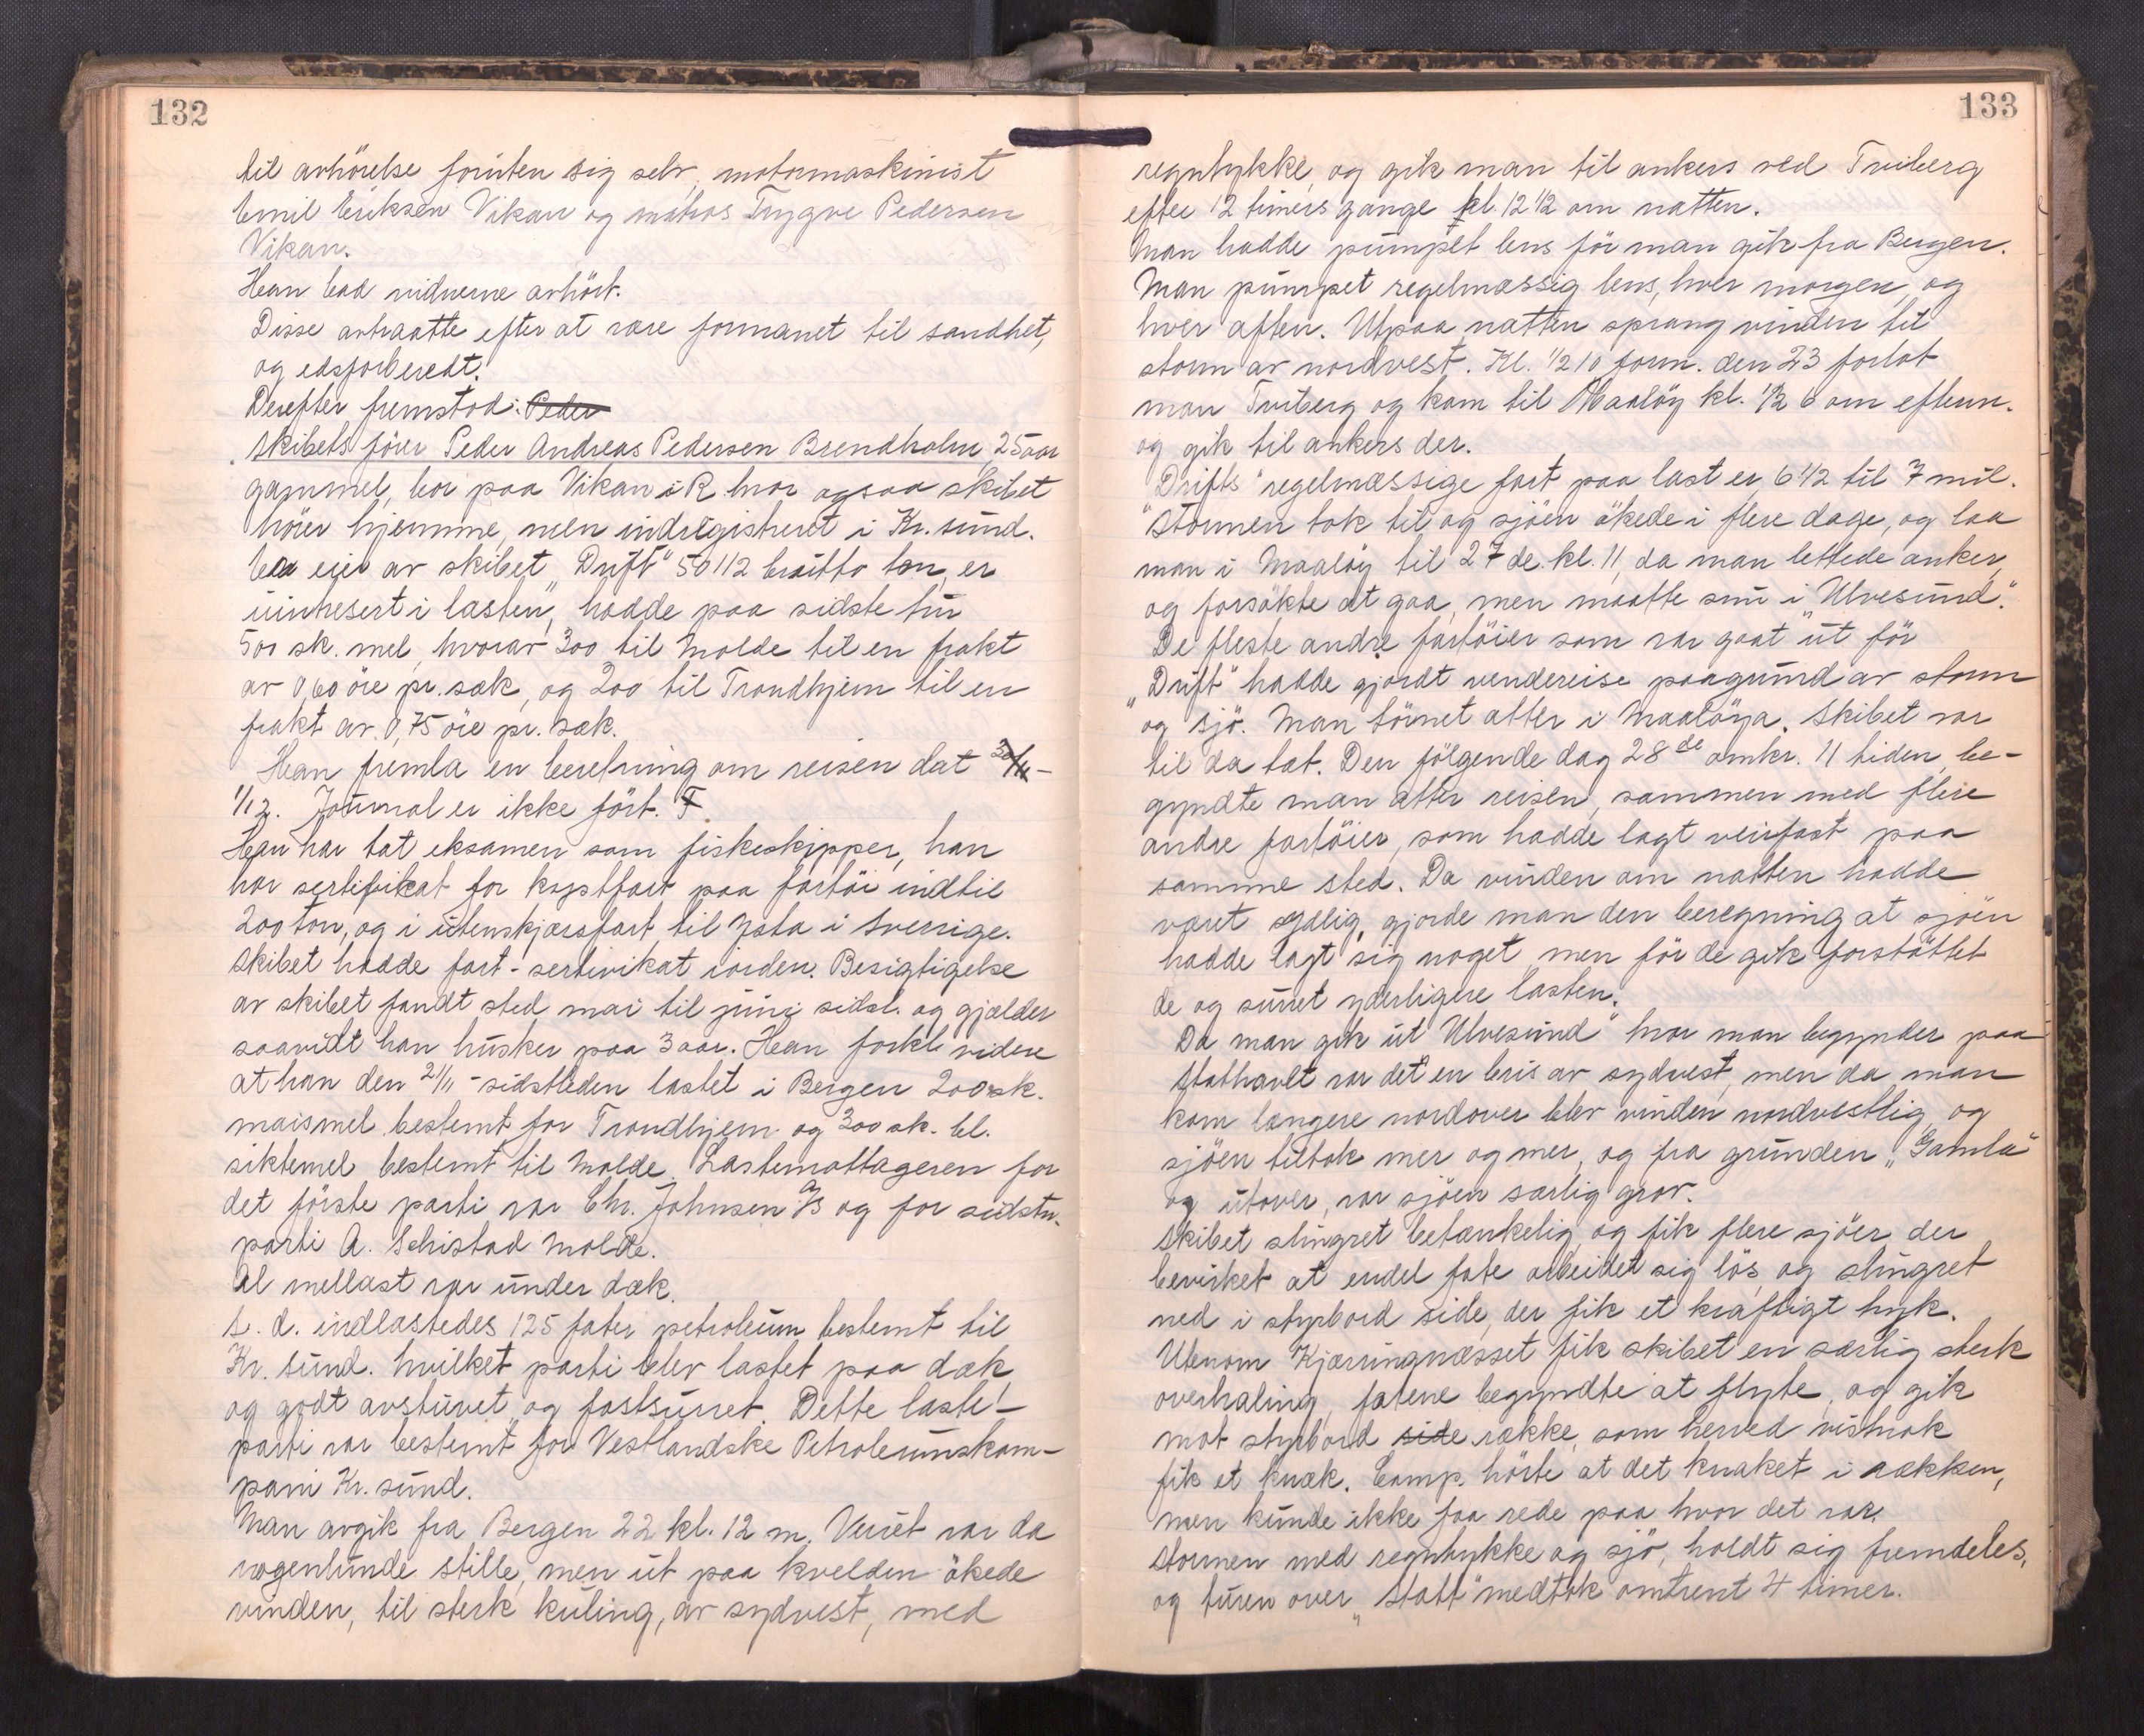 132
til avhörelse foruten sig selv, motormaskinist
Emil Eriksen Vikan og matros Trygve Pedersen
Vikan.
Han bad vidnerne avhört.
Disse avtraatte efter at være formanet til sandhet,
og edsforberedt.
Derefter fremstod: Peder
Skibets förer Peder Andreas Pedersen Brendholm, 25 aar
gammel, bor paa Vikan i R. hvor ogsaa skibet
hörer hjemme, men indregistreret i Kr. sund.
eier av skibet "Drift" 50 1/2 brutto ton, er
uintresert i lasten, hadde paa sidste tur
500 sk. mel, hvorav 300 til Molde til en frakt
av 0,60 öre pr. sæk, og 200 til Trondhjem til en
frakt av 0,75 öre pr. sæk.
Han fremla en beretning om reisen dat 30/11 -
1/12. Journal er ikke fört. F
Han har tat eksamen som fiskeskipper, han
har sertifikat for kystfart paa fartöi indtil
200 ton, og i utenskjærsfart til Ysta i Sverrige.
Skibet hadde fart-sertivikat iorden. Besigtigelse
av skibet fandt sted mai til juni sidstl. og gjælder
saavidt han husker paa 3 aar. Han forkl. videre
at han den 21/11 - sidstleden lastet i Bergen 200 sk.
maismel bestemt for Trondhjem og 300 sk. bl.
siktemel bestemt til Molde. Lastemottageren for
det förste parti var Chr. Johnsen A/S og for sidstn.
parti A. Schistad Molde.
Al mellast var under dæk.
S. d. indlastedes 125 fater petroleum bestemt til
Kr. Sund. hvilket parti blev lastet paa dæk
og godt avstuvet og fastsurret. Dette laste-
parti var bestemt for Vestlandske Petroleumskom-
pani Kr. sund.
Man avgik fra Bergen 22 kl. 12 m. Veiret var da
nogenlunde stille, men ut paa kvelden ökede
vinden, til sterk kuling, av sydvest, med
133
regntykke, og gik man til ankers ved Triberg
efter 12 timers gange kl. 12 1/2 om natten.
Man hadde pumpet lens för man gik fra Bergen.
Man pumpet regelmæssig lens, hver morgen og
hver aften. Utpaa natten sprang vinden til
storm av nordvest. Kl. 1/2 10 form. den 23 forlot
man Triberg og kom til Maalöy kl. 1/2 6 om efterm.
og gik til ankers der.
"Drifts" regelmæssige fart paa last er 6 1/2 til 7 mil.
Stormen tok til og sjöen ökede i flere dage, og laa
man i Maalöy til 27de kl. 11, da man lettede anker,
og forsökte at gaa, men maatte snu i "Ulvesund".
De fleste andre fartöier som var gaat ut för
"Drift" hadde gjordt vendereise paagrund av storm
og sjö. Man törnet atter i Maalöya. Skibet var
til da tæt. Den fölgende dag 28de omkr. 11 tiden, be-
gyndte man atter reisen, sammen med flere
andre fartöier, som hadde lagt veirfast paa
samme sted. Da vinden om natten hadde
været sydlig, gjorde man den beregning at sjöen
hadde lagt sig noget, men för de gik forstöttet
de og surret yderligere lasten.
Da man gik ut "Ulvesund" hvor man begynder paa
Stathavet var det en bris av sydvest, men da man
kom længere nordover blev vinden nordvestlig, og
sjöen tiltok mer og mer, og fra grunden "Gamla"
og utover, var sjöen særlig grov.
Skibet slingret betænkelig og fik flere sjöer der
bevirket at endel fate arbeidet sig lös, og slingret
ned i styrbord side, der fik et kraftigt tryk.
Utenom Kjærringnæsset fik skibet en særlig sterk
overhaling, fatene begyndte at flyte, og gik
mot styrbord side række, som herved vistnok
fik et knæk. Comp. hörte at det knaket i rækken,
men kunde ikke faa rede paa hvor det var.
Stormen med regntykke og sjö, holdt sig fremdeles,
og turen over "Statt" medtok omtrent 4 timer.